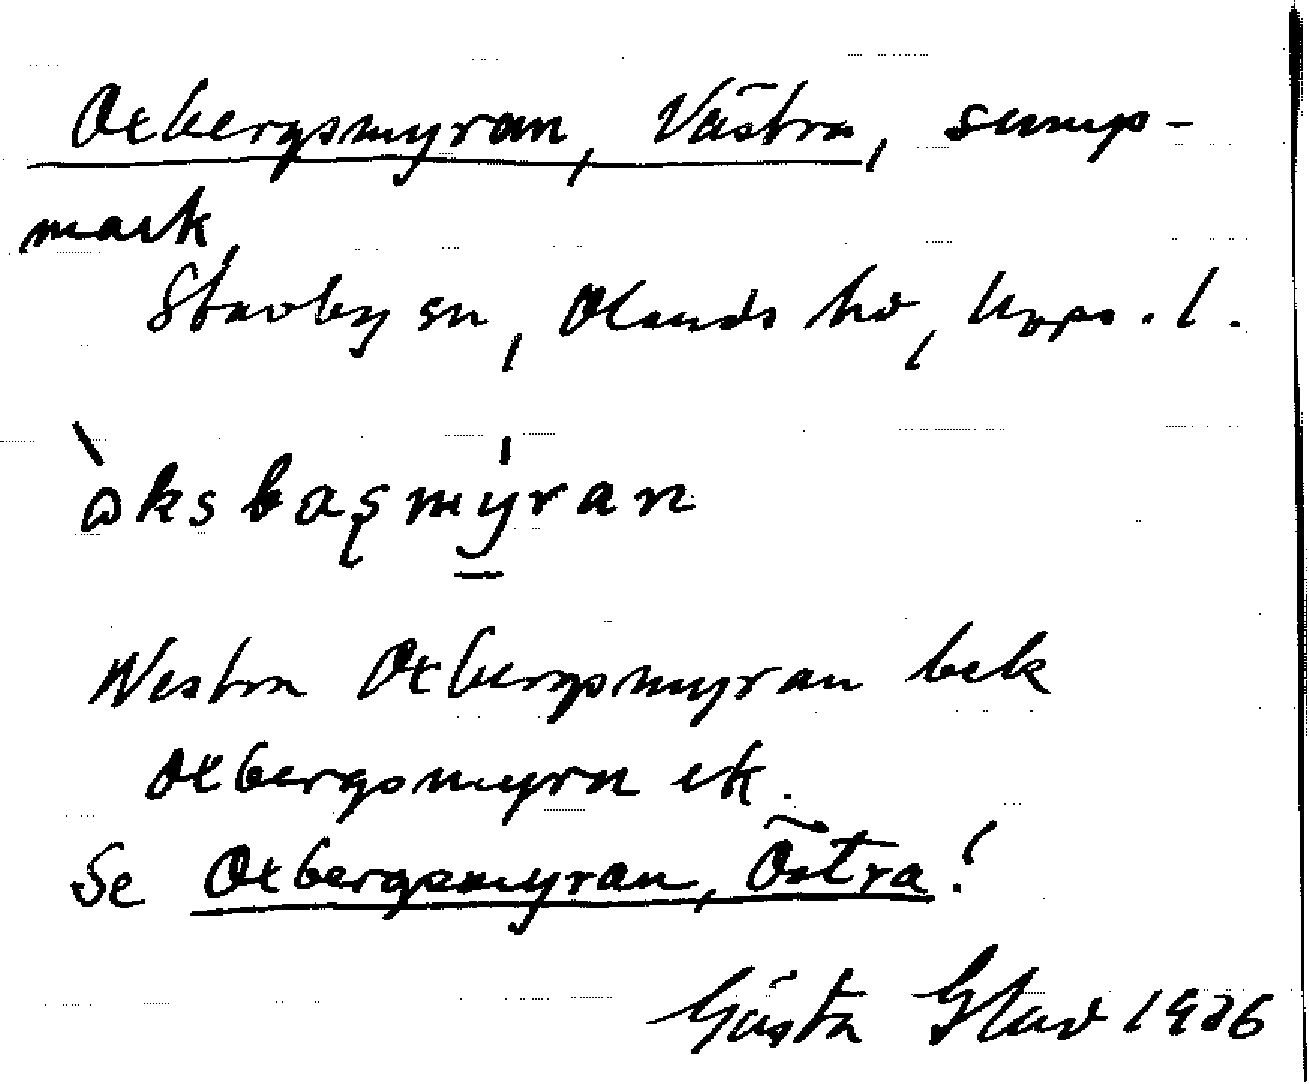 Oxbergsmyran, Västra, sump-
mark,
Stavby sn, Olands hd, Upps. l.
òksbaʂmýran
Westra Oxbergsmyran bek
Oxbergsmyrn ek.
Se Oxbergsmyran, Östra!
Gösta Glav 1936